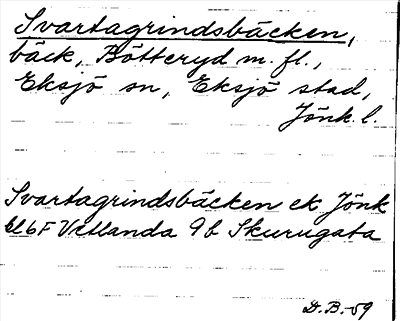 Svartagrindsbäcken,
bäck, Bötteryd m. fl.,
Eksjö sn, Eksjö stad,
Jönk. l.
Svartagrindsbäcken ek Jönk
bl 6F Vetlanda 9b Skurugata
D. B. -59